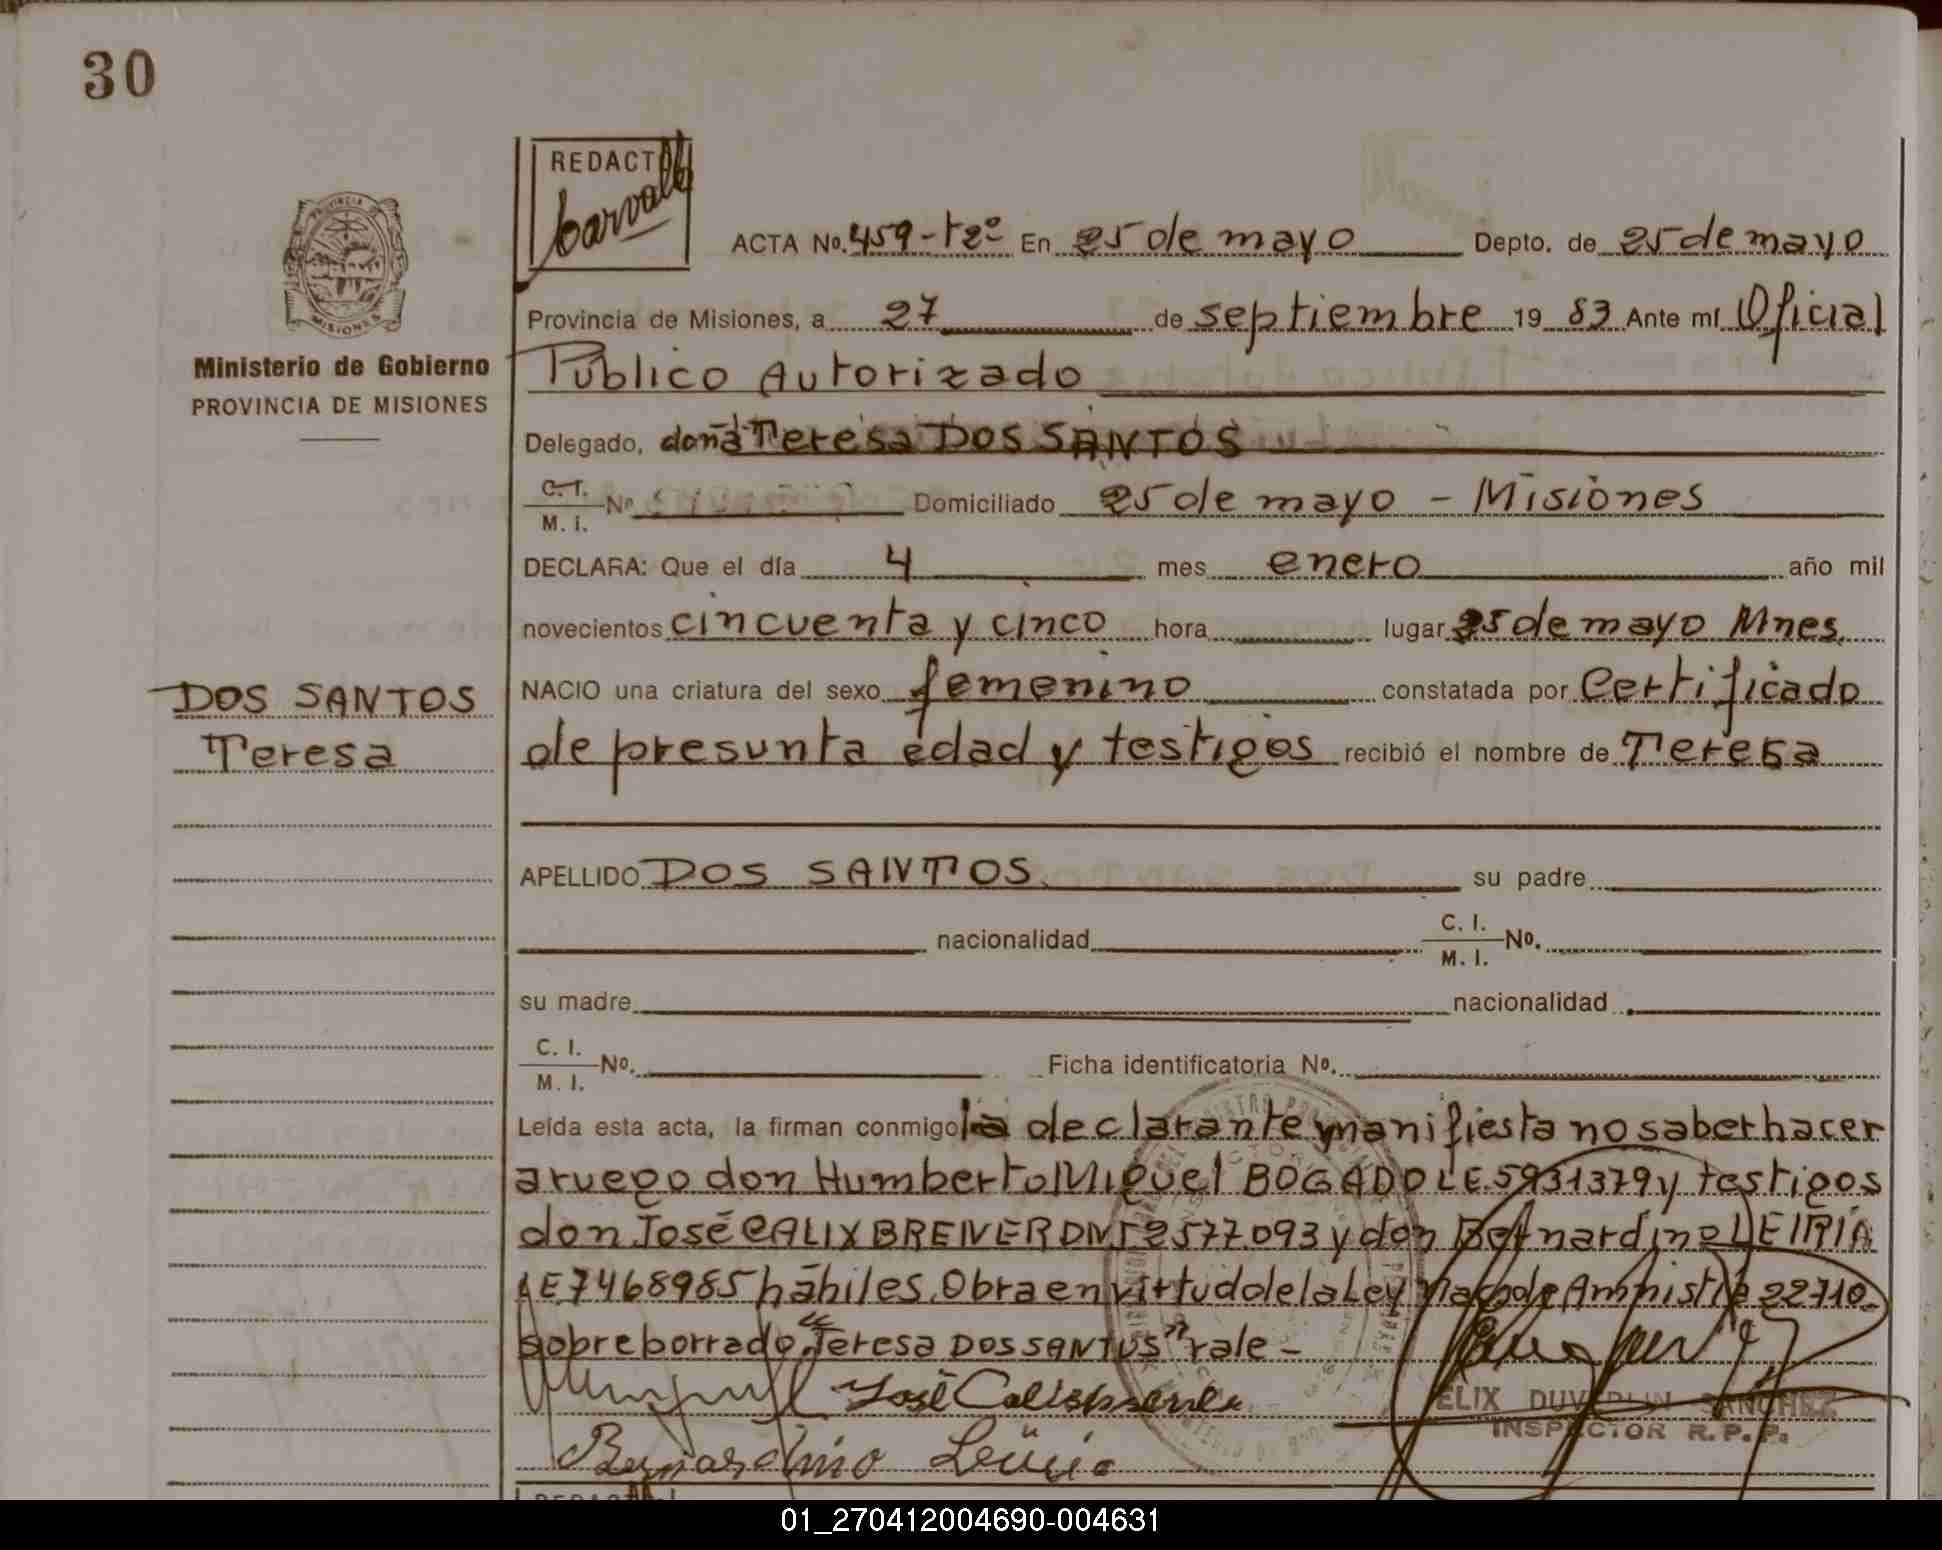 30
REDACTO
Carvallo
PROVINCIA DE
MISIONES
Ministerio de Gobierno
PROVINCIA DE MISIONES
DOS SANTOS
Teresa
ACTA No. 459-tº2º En 25 de mayo Depto. de 25 de mayo
Provincia de Misiones, a 27 de septiembre 19 83 Ante mí Oficial
Público Autorizado
Delegado, doña Teresa DOS SANTOS
C. I.
M. I. Nº Domiciliado 25 de mayo - Misiones
DECLARA: Que el día 4 mes enero año mil
novecientos cincuenta y cinco hora lugar 25 de mayo Mnes.
NACIO una criatura del sexo femenino constatada por Certificado
de presunta edad y testigos recibió el nombre de Teresa
APELLIDO DOS SANTOS su padre
nacionalidad C. I.
M. I. No.
su madre nacionalidad
C. I.
M. I. No. Ficha identificatoria No.
Leída esta acta, la firman conmigo la declarante y manifiesta no saber hacer
a ruego don Humberto Miguel BOGADO LE 5931379 y testigos
don José CALIX BREIVER DNI 2577.093 y don Bernardino LEIRIA
LE 7468985 hábiles. Obra en virtud de la Ley Nac. de Amnistía 22710.
sobre borrado "Teresa DOS SANTOS" vale -
José
Bernardino
FELIX DUVERLIN SANCHEZ
INSPECTOR R. P. P.
01_270412004690-004631